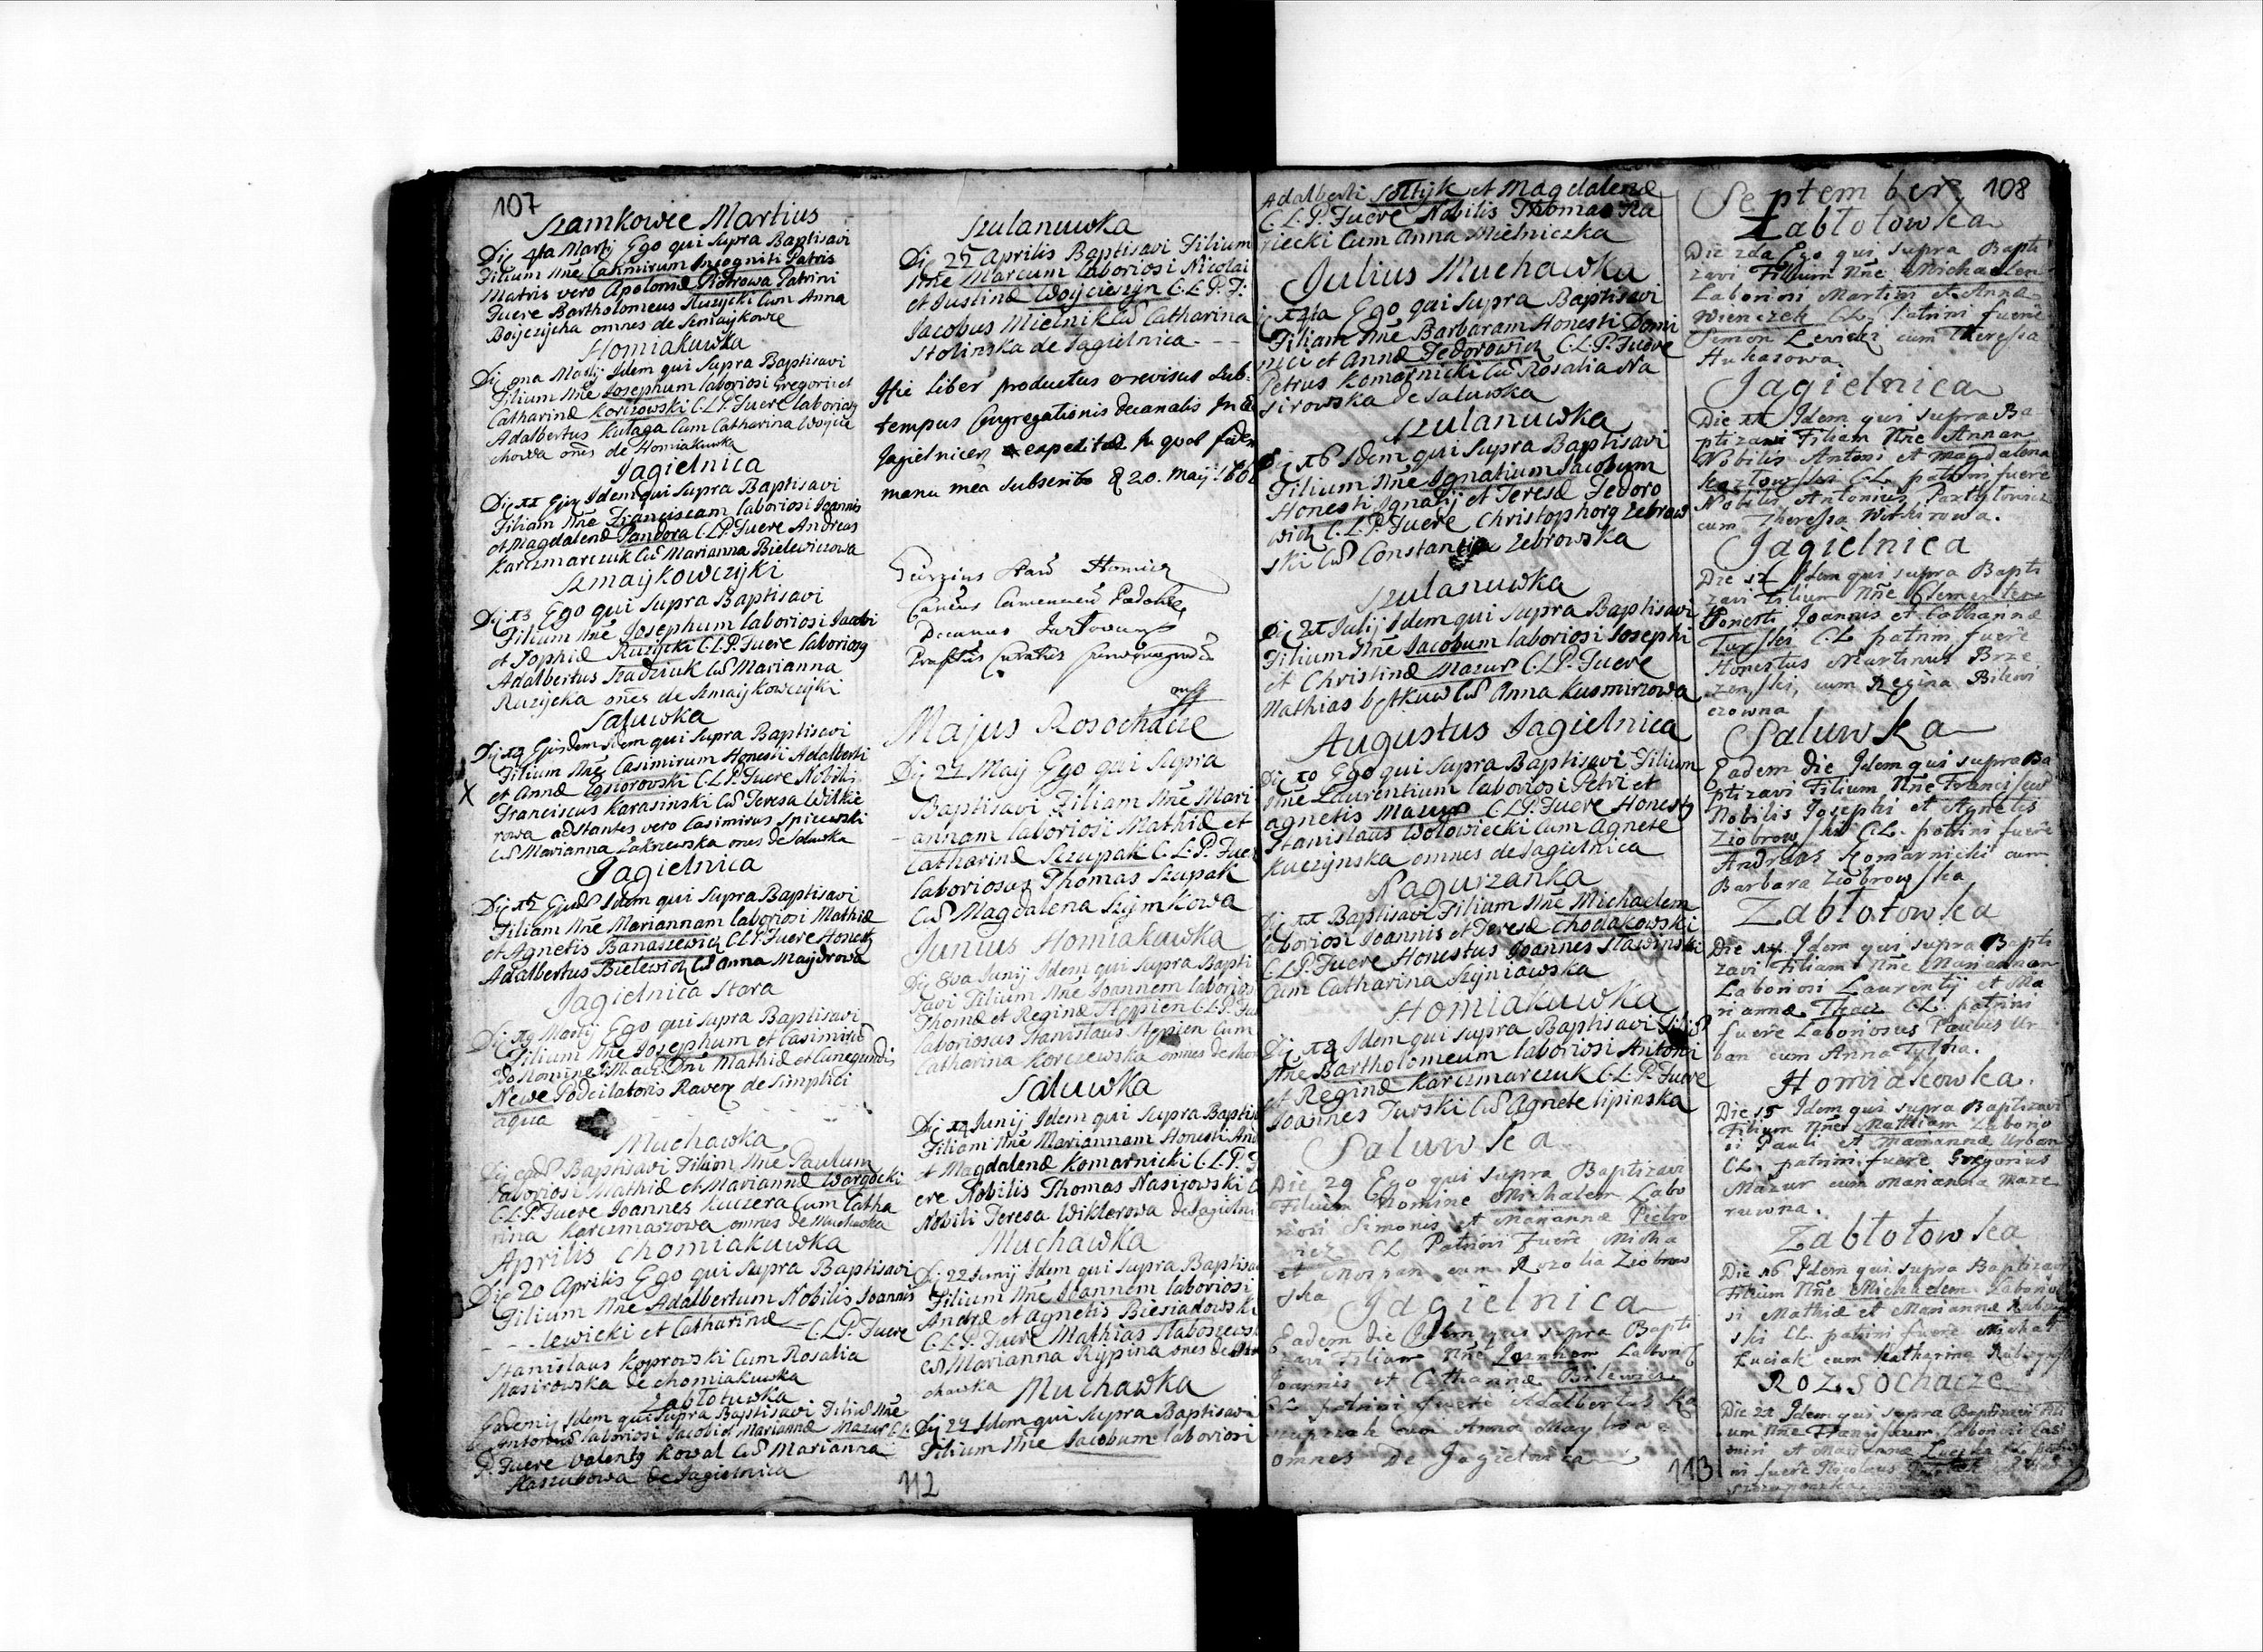 107
Szamkowce Martius
Die 4ta Martij Ego qui Supra Baptisavi
Filium Nñe Casimirum Incogniti Patris
Matris vero Apolonæ Piotrowa Patrini
Fuere Bartholomeus Ruzycki Cum Anna
omnes de Szmaykowce
Homiakuwka
Die 9na Martij Idem qui Supra Baptisavi
Filium Nñe Josephum laboriosi Gregorii et
Catharinæ Korczowski C.L.P. Fuere laboriosg
Adalbertus Kulaga Cum Catharina Woycie
chowa oñes de Homiakuwka
Jagielnica
Die 11 Idem qui Supra Baptisavi
Filiam Nñe Franciscam laboriosi Joannis
et Magdalenæ Pandora C.L.P. Fuere Andreas
Karczmarczuk Cũ Marianna Bielewiczowa
Szmaykowczyki
Die 13 Ego qui Supra Baptisavi
Filium Nñe Josephum laboriosi Jacobi
et Sophiæ Ruzycki C.L.P. Fuere laboriosg
Adalbertus Hadziuk Cũ Marianna
Ruzycka oñes de Szmaykowczyki
Saluwka
Die 14 Ejusdem Idem qui Supra Baptisavi
X
Filium Nñe Casimirum Honesti Adalberti
et Annæ C.L.P. Fuere Nobilis
Franciscus Karasinski Cũ Teresa Wilkie
rowa adstantes vero Casimirus Spiczewski
Cũ Marianna Zakrzewska oñes de Saluwka
Jagielnica
Die 15 Ejusd Idem qui Supra Baptisavi
Filiam Nñe Mariannam laboriosi Mathiæ
et Agnetis Banaszewicz C.L.P. Fuere Honestg
Adalbertus Bielewicz Cũ Anna Maydrowa
Jagielnica Stara
Die 19 Martij Ego qui Supra Baptisavi
Filium Nñe Josephum et Casimirũ
Nomine Mag. Dñi Mathiæ et Cunegundis
Newe Podcilatoris Raver de Simplici
aqua
Muchawka
Die ead Baptisavi Filium Nñe Paulum
laboriosi Mathiæ et Mariannæ Wargocki
C.L.P. Fuere Joannes Kuczera Cum Catha
rina Karczmarzowa omnes de Muchawka
Aprilis Chomiakuwka
Die 20 Aprilis Ego qui Supra Baptisavi
Filium Nñe Adalbertum Nobilis Joannis
lewicki et Catharinæ C.L.P. Fuere
Stanislaus Koprowski Cum Rosalia
Nasirowska de Chomiakuwka
Zabłotuwka
Idem qui Supra Baptisavi Filiũ Nñe
Antoniũ laboriosi Jacobi et Mariannæ Mazur C.L.
P. Fuere Valentg Kowal Cũ Marianna
Kaszubowa de Jagielnica
Szulanuwka
Die 25 Aprilis Baptisavi Filium
Nñe Marcum laboriosi Nicolai
et Justinæ Woycieszyn C.L.P. F.
Jacobus Mielnik Cũ Catharina
Stolinska de Jagielnica
Hic liber productus & revisus sub
tempus Congregationis decanalis In
Jagielnicen expeditæ In quod fidem
manu mea Subscribo d 20. Maij
Majus Rosochacze
Die 24 May Ego qui Supra
Baptisavi Filiam Nñe Mari
annam laboriosi Mathiæ et
Catharinæ Szupak C.L.P. Fuer
laboriosus Thomas Szupak
Cũ Magdalena Szymkowa
Junius Homiakuwka
Die 8va Junij Idem qui Supra Bapti
savi Filium Nñe Joannem laborios
Thomæ et Reginæ Stepien C.L.P. Fu
laboriosus Stanislaus Stepien Cum
Catharina Korczewska omnes de Hom
Saluwka
Die 12 Junij Idem qui Supra Baptis
Filiam Nñe Mariannam Honesti And
et Magdalenæ Komarnicki C.L.P. F
ere Nobilis Thomas Nasirowski
Nobili Teresa Wiklerowa de Jagielni
Muchawka
Die 22 Junij Idem qui Supra Baptisa
Filium Nñe Joannem laboriosi
Andræ et Agnetis Biesiadowski
C.L.P. Fuere Mathias Naboszewsk
Cũ Marianna Rypina oñes de Mu
chawka
Muchawka
Die 24 Idem qui Supra Baptisavi
Filium Nñe Jacobum laboriosi
112
Adalberti Sołtyk et Magdalenæ
C.L.P. Fuere Nobilis Thomas Ra
riecki Cum Anna Mielniczka
Julius Muchawka
14ta Ego qui Supra Baptisavi
Filiam Nñe Barbaram Honesti Domi
nici et Annæ Fedorowicz C.L.P. Fuere
Petrus Komarnicki Cũ Rosalia Na
sirowska de Saluwka
Szulanuwka
Die 16 Idem qui Supra Baptisavi
Filium Nñe Ignatium Jacobum
Honesti Ignatij et Teresæ Fedoro
wicz C.L.P. Fuere Christophorg Zebrow
ski Cũ Constantia Zebrowska
Szulanuwka
Die 21 Julij Idem qui Supra Baptisavi
Filium Nñe Jacobum laboriosi Josephi
et Christinæ Mazur C.L.P. Fuere
Mathias Cũ Anna Kusmirzowa
Augustus Jagielnica
Die 10 Ego qui Supra Baptisavi Filium
Nñe Laurentium laboriosi Petri et
Agnetis Mazur C.L.P. Fuere Honestg
Stanislaus Wołowiecki Cum Agnete
Kuczynska omnes de Jagielnica
Nagurzanka
Die 11 Baptisavi Filium Nñe Michaelem
laboriosi Joannis et Teresæ Chodakowski
C.L.P. Fuere Honestus Joannes Stawinski
Cum Catharina Szyniawska
Homiakuwka
Die 12 Idem qui Supra Baptisavi Filiũ
Nñe Bartholomeum laboriosi Antoni
et Reginæ Karczmarczuk C.L.P. Fuere
Joannes Turski Cũ Agnete lipinska
Saluwka
Die 29 Ego qui supra Baptizavi
Filium Nomine Michalem Labo
riosi Simonis et Mariannæ Pietro
wicz CL Patrini Fuere Micha
el Morpan cum Rozolia Ziobrow
ska
Jagielnica
Eadem die Idem qui supra Bapti
zavi Filium Nñe Joannem Labori
Joannis et Catharinæ Bilewicz
CL patrini fuere Adalbertus
cum Anna May
omnes De Jagielnica
113
108
September
Zabłotowka
Die 2da Ego qui supra Bapti
zavi Filium Nñe Michaelem
Laboriosi Martini et Anna
Wienczek CL. Patrini fuere
Simon Levicki cum Theressa
Hukasowa
Jagielnica
Die 11 Idem qui supra Ba
ptizavi Filiam Nñe Annam
Nobilis Antoni et Magdalena
Kozłowski CL. patrini fuere
Nobilis Antonius
cum Theressa
Jagielnica
Die 12 Idem qui supra Bapti
zavi Filium Nñe Clementem
Honesti Joannis et Catharinæ
Turski CL patrini fuere
Honestus Martinus Brze
zenski, cum Regina Bilewi
czowna
Saluwka
Eadem die Idem qui supra Ba
ptizavi Filium Nñe Franciscum
Nobilis Josephi et Agnetis
Ziobrowski CL. patrini fuere
Andreas Komarnicki cum
Barbara Ziobrowska
Zabłotowka
Die 14 Idem qui supra Bapti
zavi Filiam Nñe Mariannam
Laboriosi Laurentij et Ma
riannæ Tkacz CL. patrini
fuere Laboriosus Paulus Ur
ban cum Anna Tylna.
Homiakowka.
Die 15 Idem qui supra Baptizavi
Filium Nñe Mathiam Laborio
si Pauli et Mariannæ Urban
CL. patrini fuere Gregorius
Mazur cum Marianna Maze
ruwna.
Zabłotowka
Die 16 Idem qui supra Baptizavi
Filium Nñe Michaelem Laborio
si Mathiæ et Mariannæ
ski CL patrini fuere Michał
Łuciak cum Katharina
ROZSOCHACZE
Die 21 Idem qui supra Baptizavi Fili
um Nñe Franciscum Laboriosi Casi
miri et Mariannæ patri
ni fuere Nicolaus